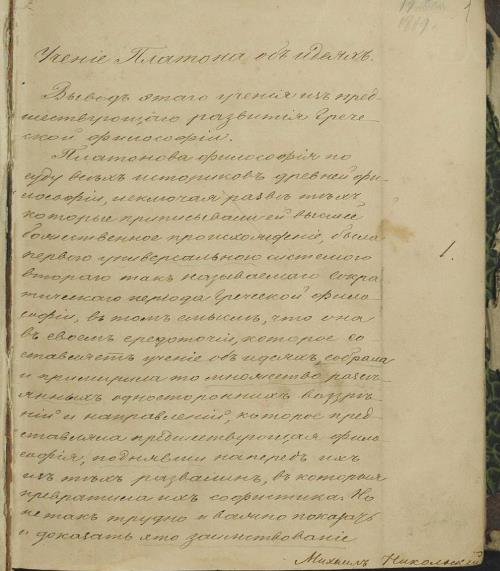 1869
Ученіе Платона объ идеяхъ.
Выводъ этаго ученія изъ пред-
шествующаго развитія Грече-
ской философіи.
Платонова философія по
суду всѣхъ историковъ древней фи-
лософіи, исключая развѣ тѣхъ
которые приписывали ей высшее
божественное происхожденіе, была
первою универсальною системою
втораго такъ называемаго Сокра-
тическаго періода Греческой фило-
софіи, въ томъ смыслѣ, что она
въ своемъ средоточіи, которое со
ставляетъ ученіе объ идеяхъ, собрала
и примирила то множество разсѣ-
янныхъ одностороннихъ воззрѣ-
ній и направленій, которое пред-
ставляла предшествующая фило
софія, поднявши напередъ ихъ
изъ тѣхъ развалинъ, въ которыя
превратила ихъ софистика. Но
не такъ трудно и важно показать
и доказать это заимствованіе
1.
Михаилъ Никольскій